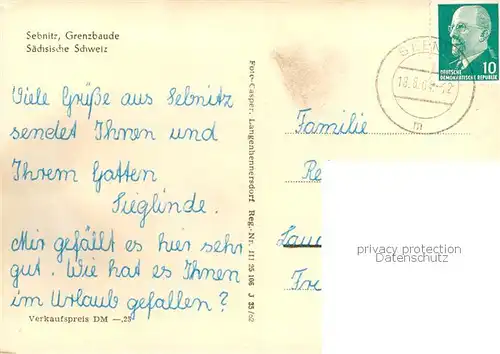 Sebnitz, Grenzbaude
Sächsische Schweiz
Viele Grüße aus Sebnitz
sendet Ihnen und
Ihrem Gatten
Sieglinde.
Mir gefällt es hier sehr
gut. Wie hat es Ihnen
im Urlaub gefallen?
Verkaufspreis DM —.25
Foto-Casper, Langenhennersdorf Reg.-Nr. III 25 106 J 35/62
DEUTSCHE
DEMOKRATISCHE REPUBLIK
10
m
Familie
privacy protection
Datenschutz